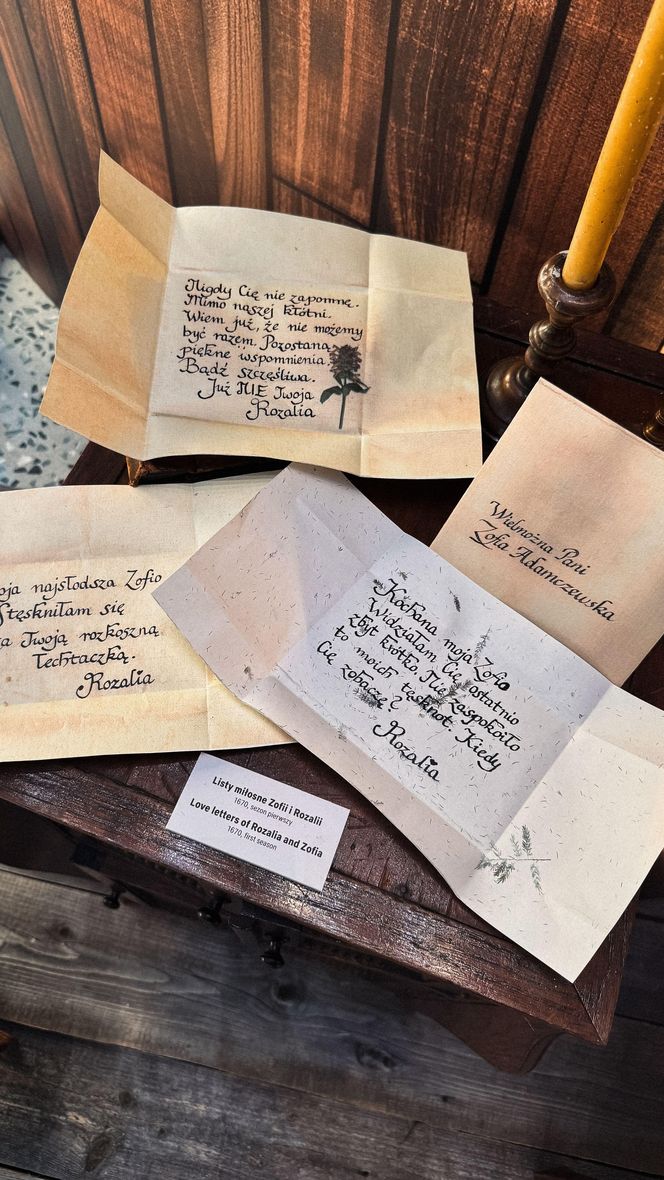 Nigdy Cię nie zapomnę.
Mimo naszej kłótni.
Wiem już, że nie możemy
być razem. Pozostaną
piękne wspomnienia.
Bądź szczęśliwa.
Już NIE Twoja
Rozalia
Wielmożna Pani
Zofia Adamczewska
oja najsłodsza Zofio
Stęskniłam się
a Twoją rozkoszną
łechtaczką.
Rozalia
Kochana moja Zofio
Widziałam Cię ostatnio
zbyt krótko. Nie zaspokoiło
to moich tęsknot. Kiedy
Cię zobaczę?
Rozalia
Listy miłosne Zofii i Rozalii
1670, sezon pierwszy
Love letters of Rozalia and Zofia
1670, first season